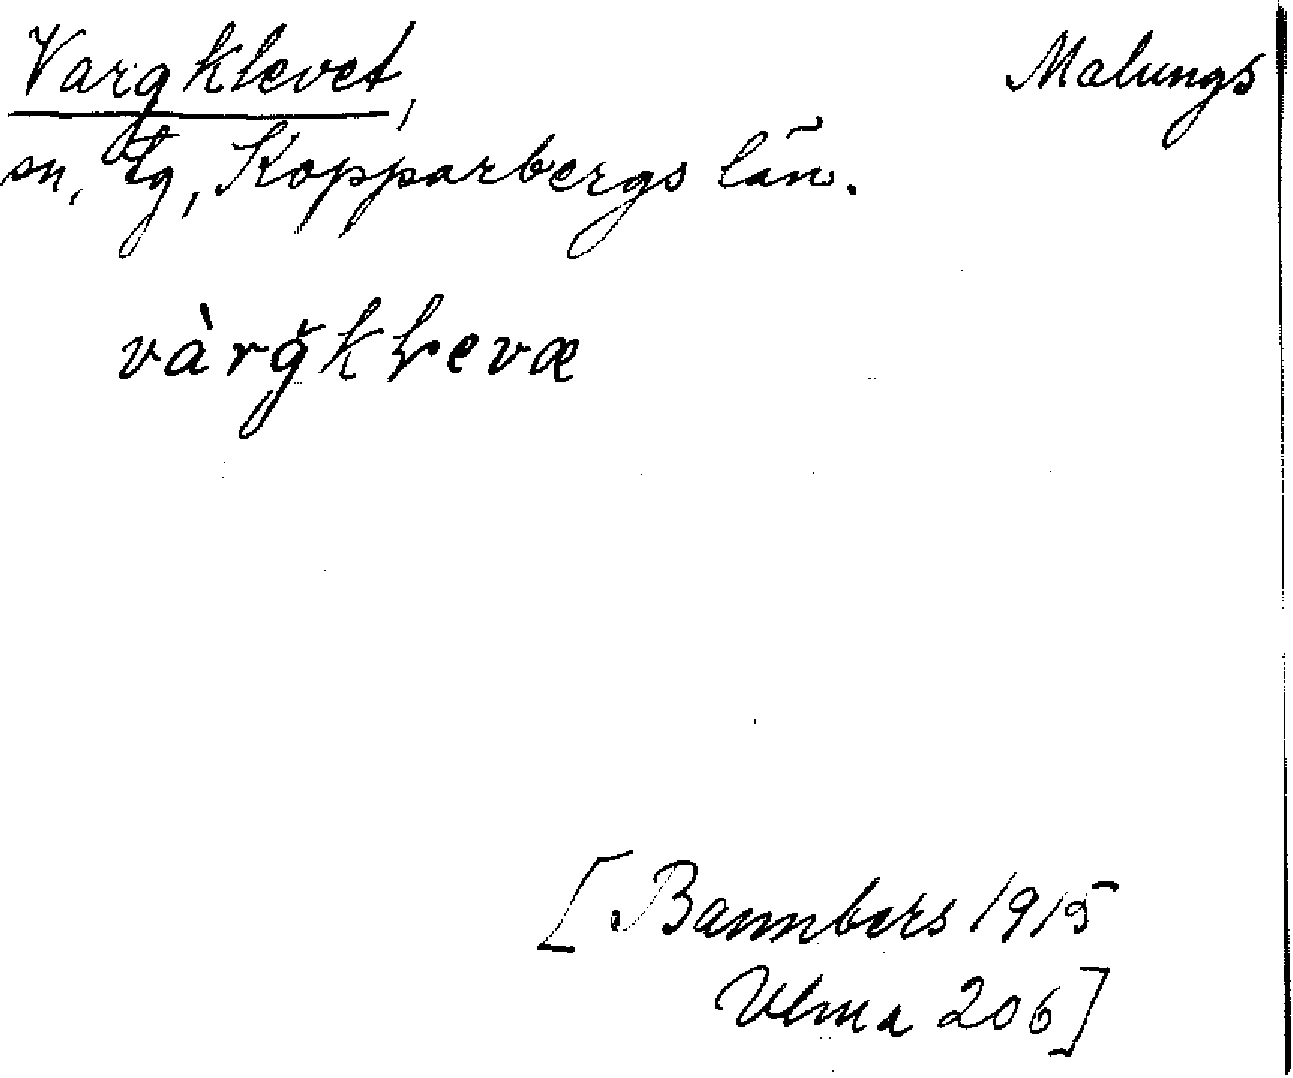 Vargklevet, Malungs
sn, tg, Kopparbergs län.
vàrgkḷevæ
[Bannbers 1915
Ulma 206]